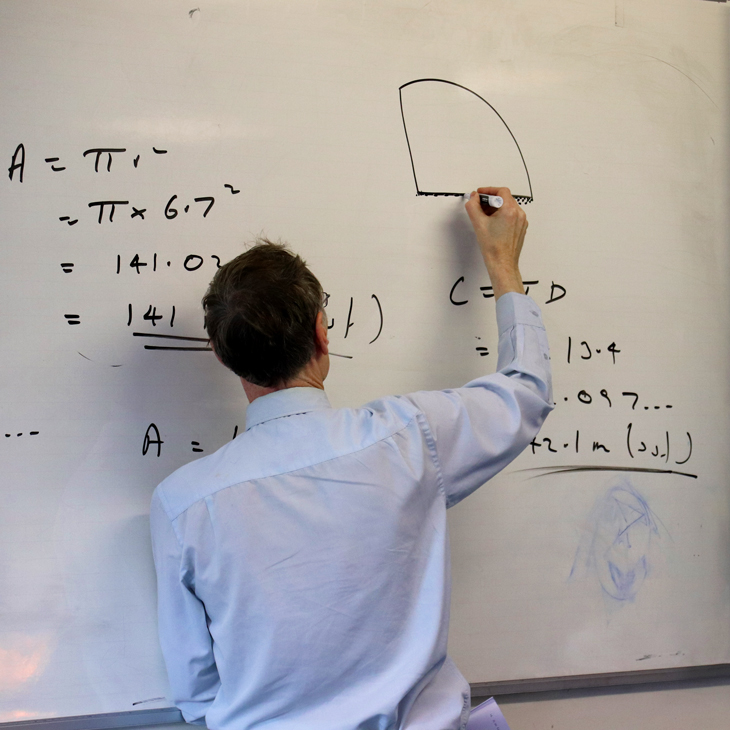 A = πr²
= π × 6.7²
= 141.02
= 141
A =
...
C = πD
= 13.4
.097...
42.1 m (3s.f.)